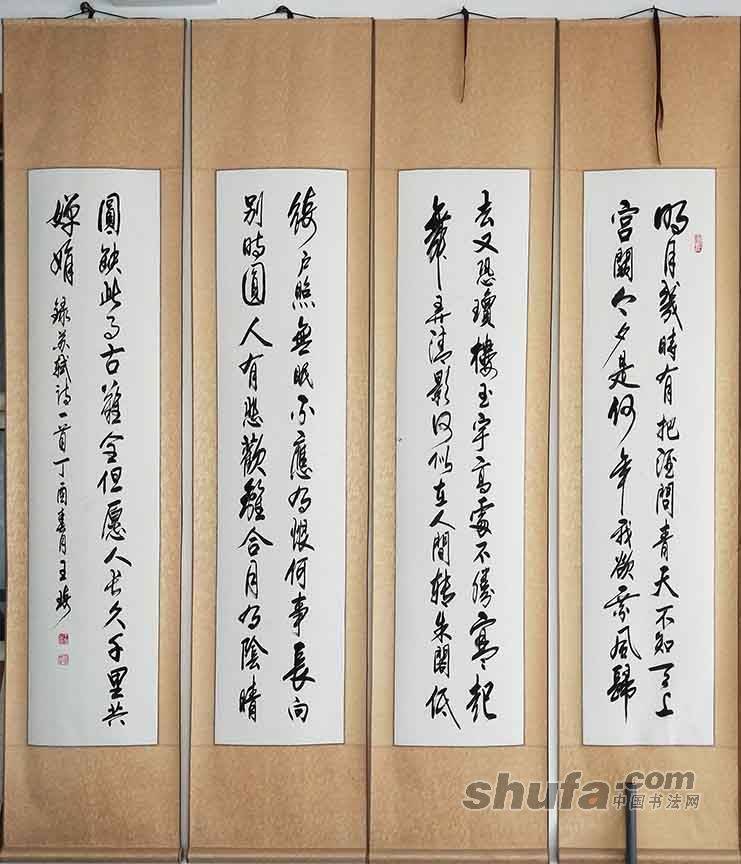 明月幾時有把酒問青天不知天上
宮闕今夕是何年我欲乘風歸
去又恐瓊樓玉宇高處不勝寒起
舞弄清影何似在人間轉朱閣低
綺戶照無眠不應有恨何事長向
別時圓人有悲歡離合月有陰晴
圓缺此事古難全但愿人長久千里共
嬋娟 錄苏軾詩一首丁酉春月王
shufa.com
中国书法网